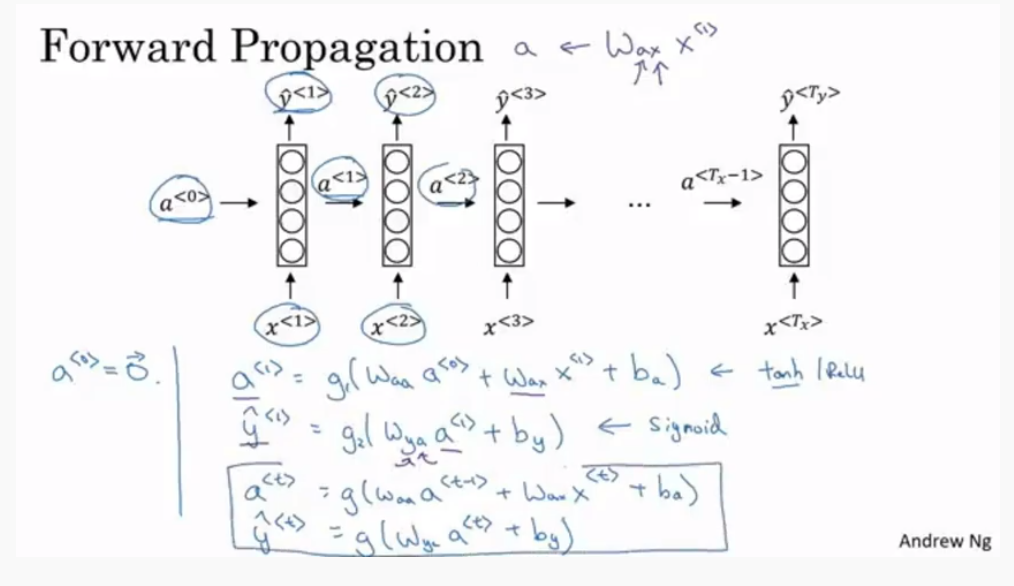 Forward Propagation a ← Wax x<1>
ŷ<1> ŷ<2> ŷ<3> ŷ<Ty>
a<0> a<1> a<2> ... a<Tx−1>
x<1> x<2> x<3> x<Tx>
a<0> = 0⃗. a<1> = g₁(Waa a<0> + Wax x<1> + ba) ← tanh | Relu
ŷ<1> = g₂(Wya a<1> + by) ← Sigmoid
a<t> = g(Waa a<t-1> + Wax x<t> + ba)
ŷ<t> = g(Wya a<t> + by)
Andrew Ng